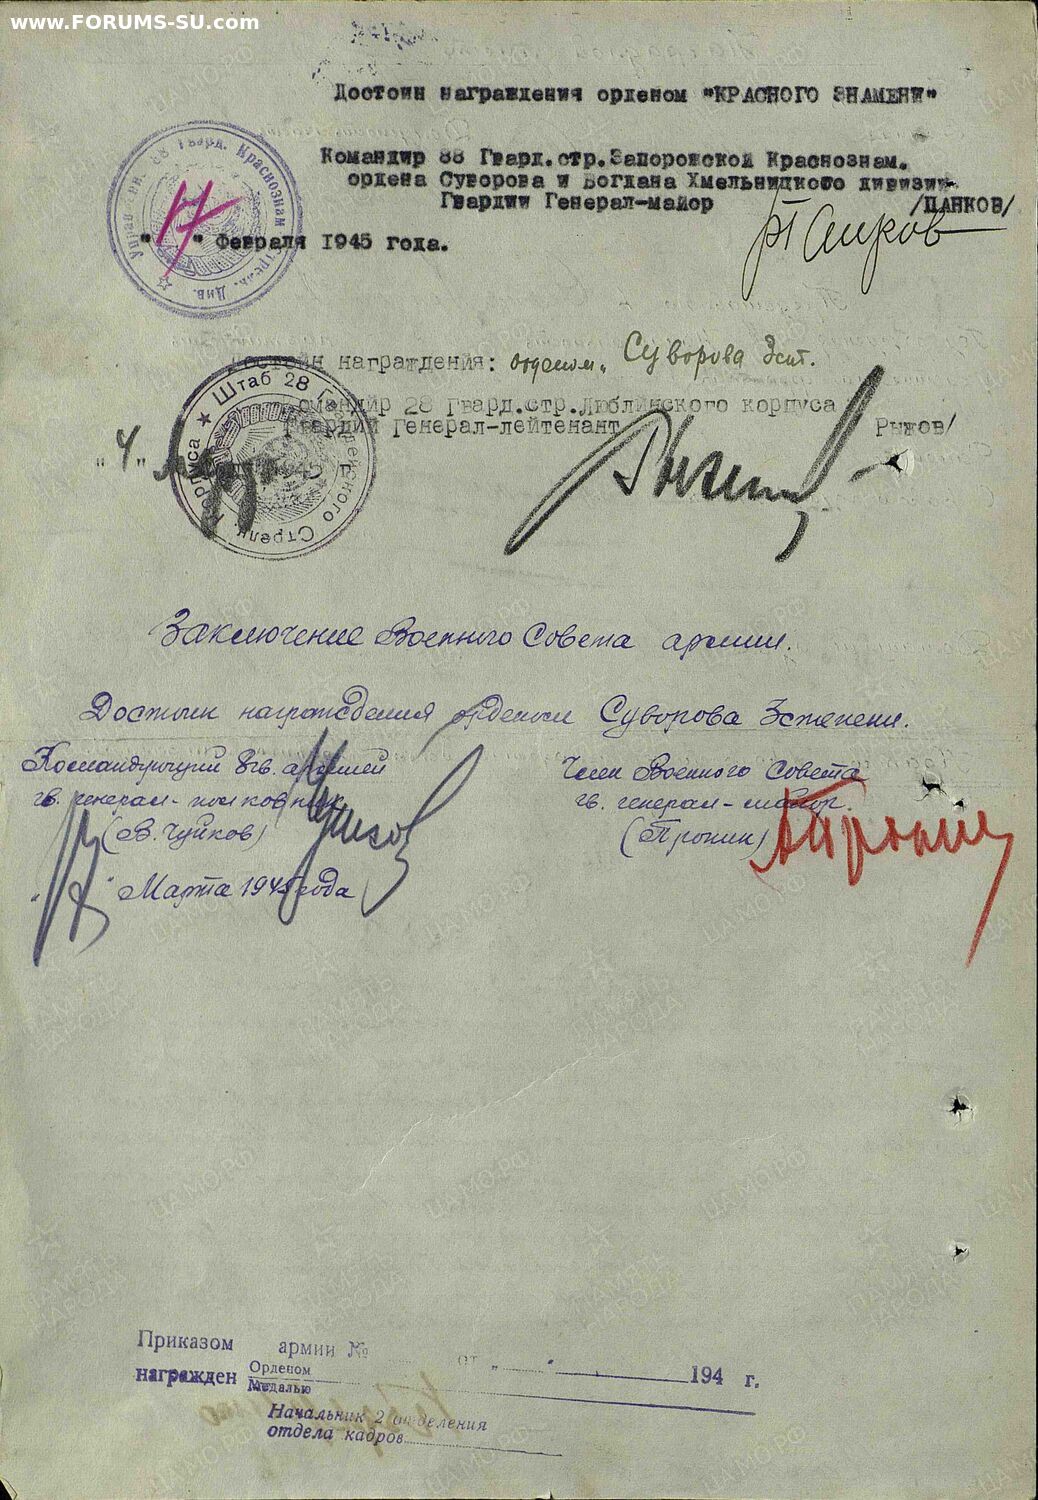 www.FORUMS-SU.com
Достоин награждения орденом "КРАСНОГО ЗНАМЕНИ"
Командир 88 Гвард.стр.Запорожской Краснознам.
ордена Суворова и Богдана Хмельницкого дивизии
Гвардии Генерал-майор /ПАНКОВ/
Панков
"17" Февраля 1945 года.
88 Гвард. Краснознам. Стрелк. Див.
Достоин награждения: орденом „Суворова 3 ст.
Командир 28 Гвард.стр.Люблинского корпуса
Гвардии Генерал-лейтенант Рыжов/
"4"
Штаб 28 Гвардейского Стрелк. Корпуса
Заключение Военного Совета армии.
Достоин награждения орденом Суворова 3 степени.
Командующий 8 гв. армией
гв. генерал-полковник
(В. Чуйков) Чуйков
Член Военного Совета
гв. генерал-майор.
(Пронин) Пронин
" " Марта 1945 года
Приказом армии № от „ " 194 г.
награжден Орденом
Медалью
Начальник 2 отделения
отдела кадров
ПАМЯТЬ НАРОДА
ЦАМО.РФ